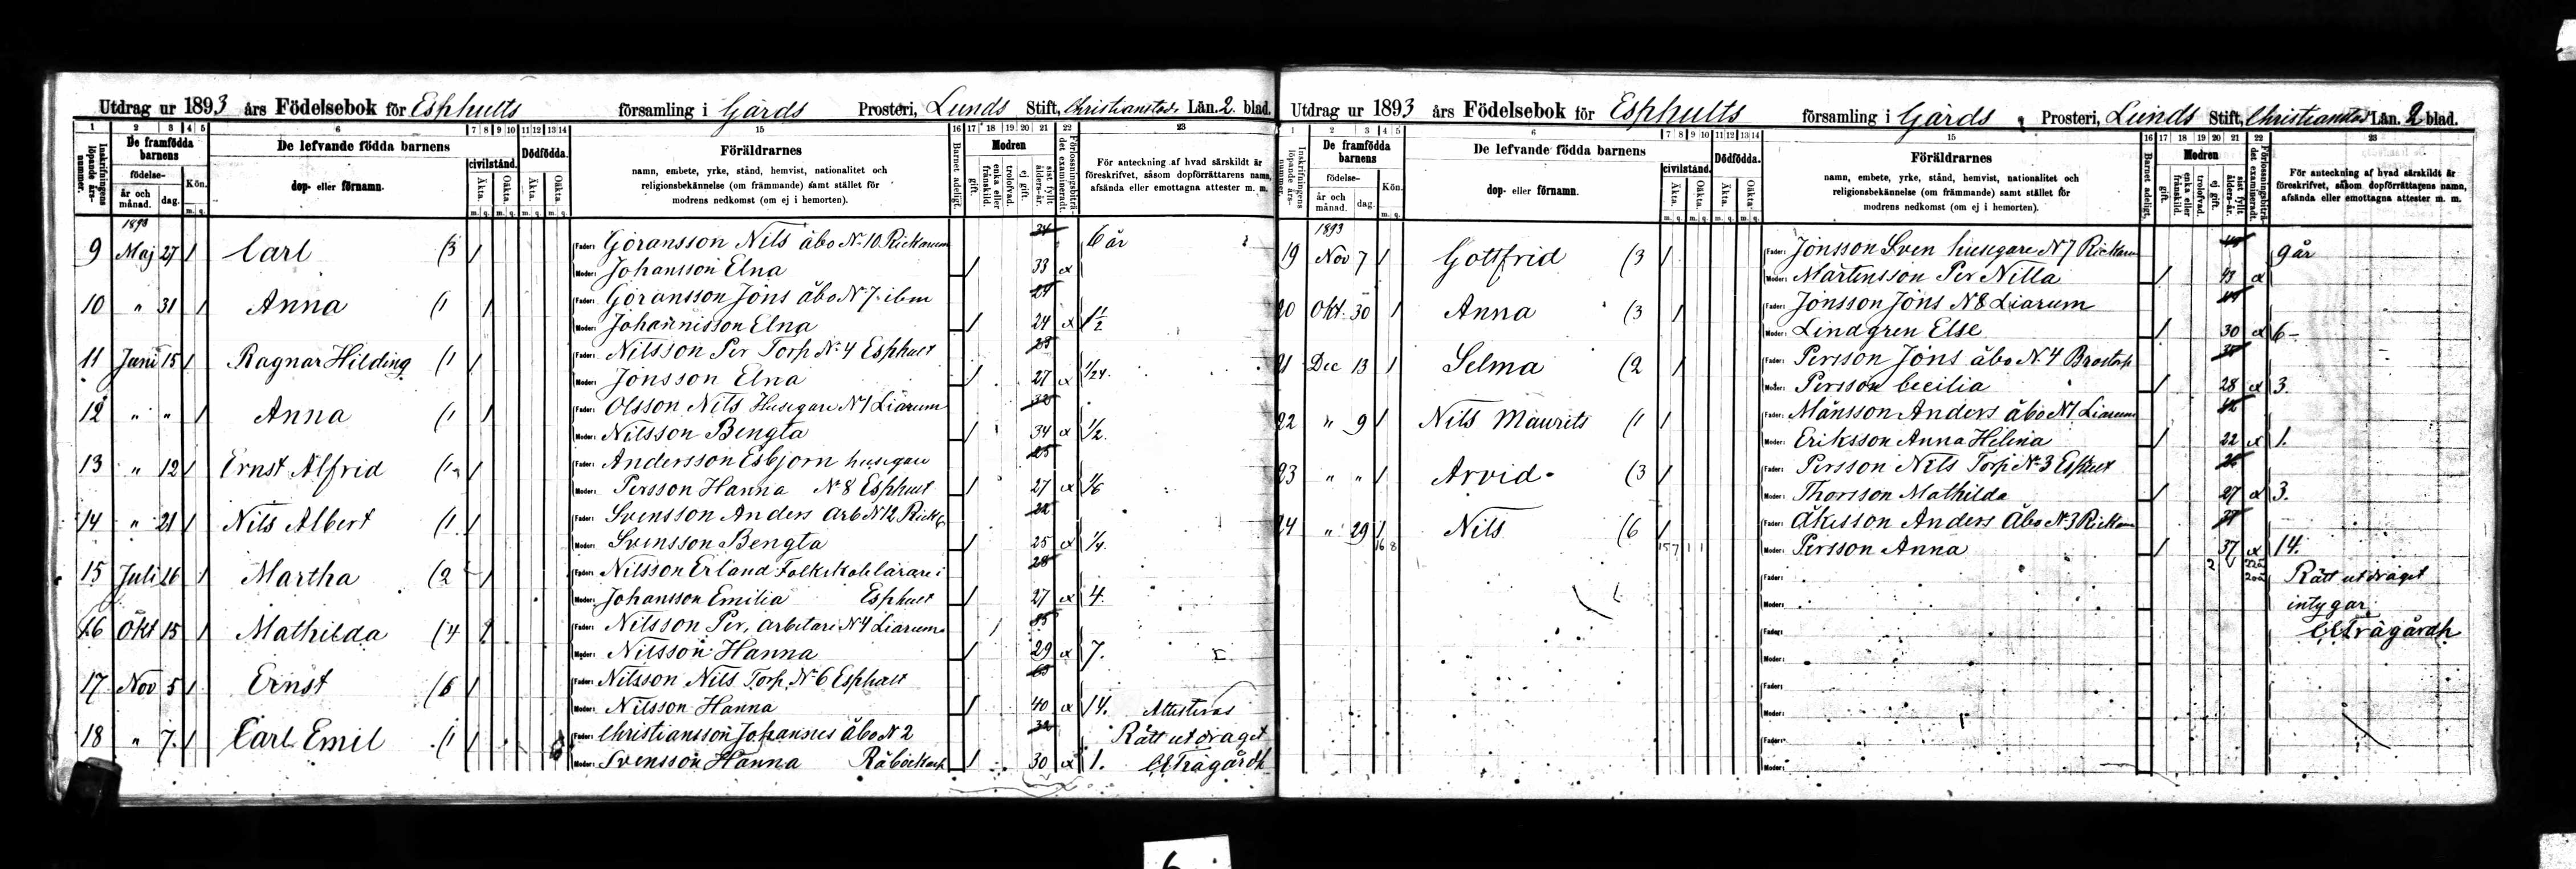 Utdrag ur 1893 års Födelsebok för Esphults församling i Gärds Prosteri, Lunds Stift, Christianstads Län. 2. blad.
1 2 3 4 5 6 7 8 9 10 11 12 13 14 15 16 17 18 19 20 21 22 23
Inskrifningens löpande års-nummer.
De framfödda barnens
födelse-
år och månad.
dag.
Kön.
m. q.
De lefvande födda barnens
dop- eller förnamn.
civilstånd.
Äkta. Oäkta.
Dödfödda.
Äkta. Oäkta.
m. q. m. q. m. q. m. q.
Föräldrarnes
namn, embete, yrke, stånd, hemvist, nationalitet och
religionsbekännelse (om främmande) samt stället för
modrens nedkomst (om ej i hemorten).
Barnet adeligt.
Modren
gift.
enka eller frånskild.
trolofvad.
ej gift.
sist fyllt ålders-år.
Förlossningsbiträdet examineradt.
För anteckning af hvad särskildt är
föreskrifvet, såsom dopförrättarens namn,
afsända eller emottagna attester m. m.
1893
9 Maj 27 1 Carl (3 1 Fader: Göransson Nils åbo No 10 Rickarum 34 6 år
Moder: Johansson Elna 1 33 x
10 " 31 1 Anna (1 1 Fader: Göransson Jöns åbo No 7 ibm
Moder: Johannisson Elna 1 24 x 1 1/2
11 Juni 15 1 Ragnar Hilding (1 1 Fader: Nilsson Per Torp No 4 Esphult
Moder: Jönsson Elna 1 27 x 1/24.
12 " " 1 Anna (1 1 Fader: Olsson Nils Husegare No 1 Liarum
Moder: Nilsson Bengta 1 34 x 1/2.
13 " 12 1 Ernst Alfrid (1 1 Fader: Andersson Esbjörn husegare 25
Moder: Persson Hanna No 8 Esphult 1 27 x 1/6
14 " 21 1 Nils Albert (1 1 Fader: Svensson Anders Arb No 12 Rick 22
Moder: Svensson Bengta 1 25 x 1/4.
15 Juli 26 1 Martha (2 1 Fader: Nilsson Erland Folkskolelärare i 28
Moder: Johansson Emilia Esphult 1 27 x 4.
16 Okt 15 1 Mathilda (4 1 Fader: Nilsson Per, arbetare No 4 Liarum 35
Moder: Nilsson Hanna 1 29 x 7.
17 Nov 5 1 Ernst (6 1 Fader: Nilsson Nils Torp No 6 Esphult
Moder: Nilsson Hanna 1 40 x 14. Attesteras
18 " 7. 1 Carl Emil (1 1 Fader: Christiansson Johannes åbo No 2 Rätt utdraget
Moder: Svensson Hanna 1 30 x 1. Trägårdh
Utdrag ur 1893 års Födelsebok för Esphults församling i Gärds Prosteri, Lunds Stift, Christianstads Län. 2 blad.
1 2 3 4 5 6 7 8 9 10 11 12 13 14 15 16 17 18 19 20 21 22 23
Inskrifningens löpande års-nummer.
De framfödda barnens
födelse-
år och månad.
dag.
Kön.
m. q.
De lefvande födda barnens
dop- eller förnamn.
civilstånd.
Äkta. Oäkta.
Dödfödda.
Äkta. Oäkta.
m. q. m. q. m. q. m. q.
Föräldrarnes
namn, embete, yrke, stånd, hemvist, nationalitet och
religionsbekännelse (om främmande) samt stället för
modrens nedkomst (om ej i hemorten).
Barnet adeligt.
Modren
gift.
enka eller frånskild.
trolofvad.
ej gift.
sist fyllt ålders-år.
Förlossningsbiträdet examineradt.
För anteckning af hvad särskildt är
föreskrifvet, såsom dopförrättarens namn,
afsända eller emottagna attester m. m.
1893
19 Nov 7 1 Gottfrid (3 1 Fader: Jönsson Sven husegare No 7 Rickarum 9 år
Moder: Mårtensson Per Nilla 1 x
20 Okt 30 1 Anna (3 1 Fader: Jönsson Jöns No 8 Liarum
Moder: Lindgren Else 1 30 x 6-
21 Dec 13 1 Selma (2 1 Fader: Persson Jöns åbo No 4
Moder: Persson Cecilia 1 28 x 3.
22 " 9 1 Nils Maurits (1 1 Fader: Månsson Anders åbo No 1 Liarum
Moder: Eriksson Anna Helena 1 22 x 1.
23 " " 1 Arvid (3 1 Fader: Persson Nils Torp No 3 Esphult
Moder: Thorsson Mathilda 1 27 x 3.
24 " 29 1 Nils (6 1 Fader: Åkesson Anders Åbo No 3 Rickarum
16 8 15 7 1 1 Moder: Persson Anna 1 37 x 14.
Fader: Rätt utdraget
Moder: intygar
Fader: Trägårdh
Moder:
Fader:
Moder:
Fader:
Moder: